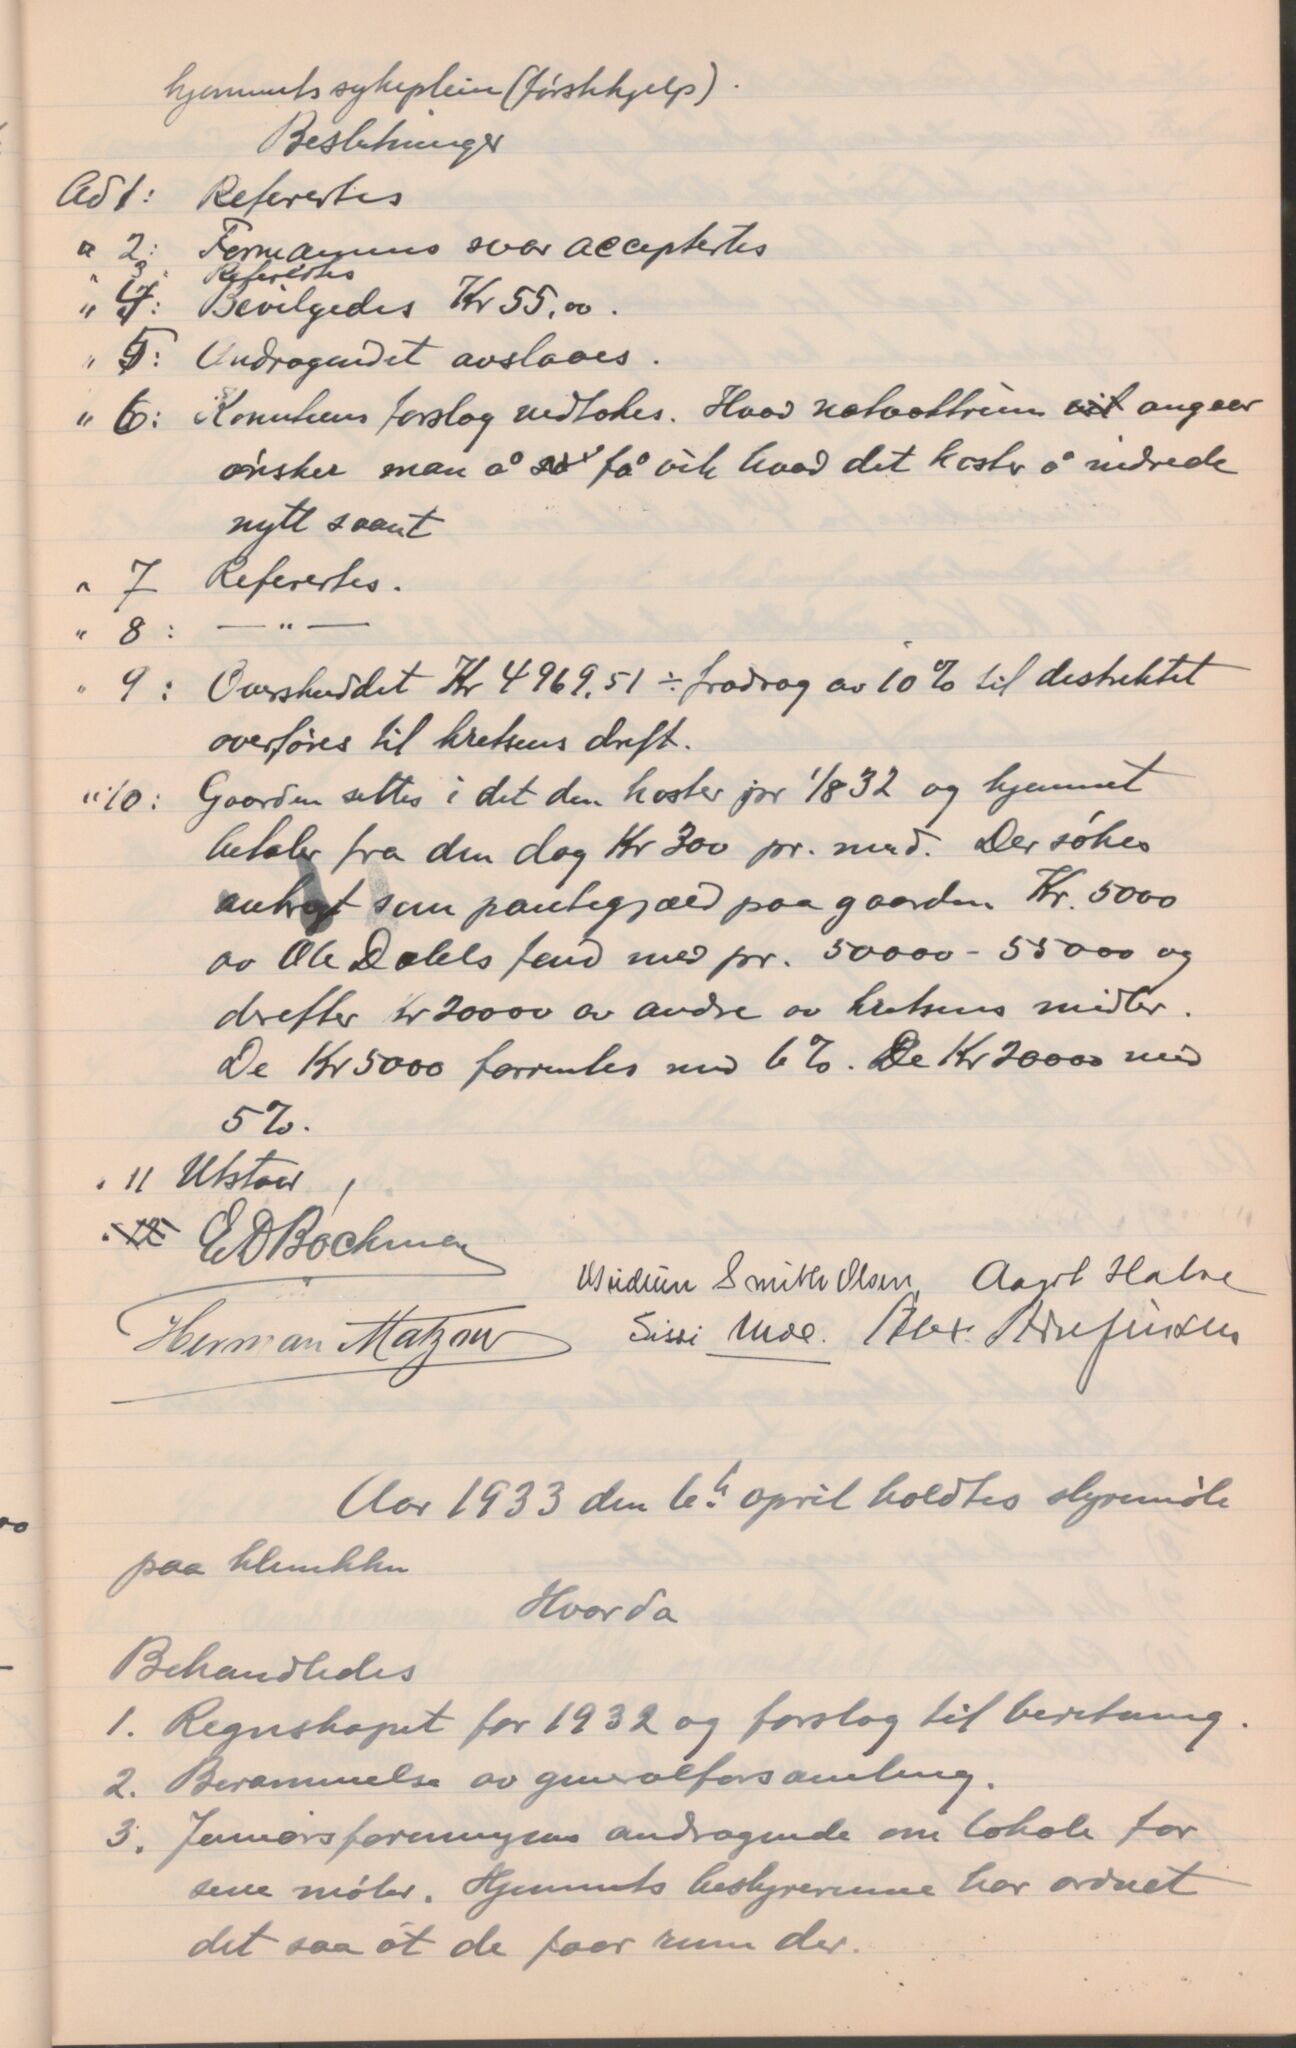 hjemmets sykepleie (förstehjelp).
Beslutninger
Ad 1: Refereertes
" 2: Formannens svar acceptertes
" 3: Refereertes
" 4: Bevilgedes Kr 55,00.
" 5: Andragendet avslaaes.
" 6: Komiteens forslag vedtokes. Hvad angaaer
önsker man å få vite hvad det koster å indrede
nytt saant
" 7 Referertes.
" 8: — " —
" 9: Overskuddet Kr 4969,51 ÷ fradrag av 10% til distriktet
overföres til kretsens drift.
" 10: Gaarden settes i det den koster pr 1/8 32 og hjemmet
betaler fra den dag Kr 300 pr. mnd. Der sökes
anbragt som pantegjæld paa gaarden Kr. 5000
av Ole Dahls fond med pr. 50000 - 55000 og
derefter kr 20000 av andre av kretsens midler.
De Kr 5000 forrentes med 6%. De Kr 20000 med
5%.
" 11 Utstaar
E D Bochman
Smith Olsen, Aagot Halne
Herman Matzow Sissi Moe. Alex.
Aar 1933 den 6te april holdtes styremöte
paa klinikken
Hvorda
Behandledes
1. Regnskapet for 1932 og forslag til beretning.
2. Berammelse av generalforsamling.
3. Juniorsforeningens andragende om lokale for
sine möter. Hjemmets bestyrerinne har ordnet
det saa at de faar rum der.